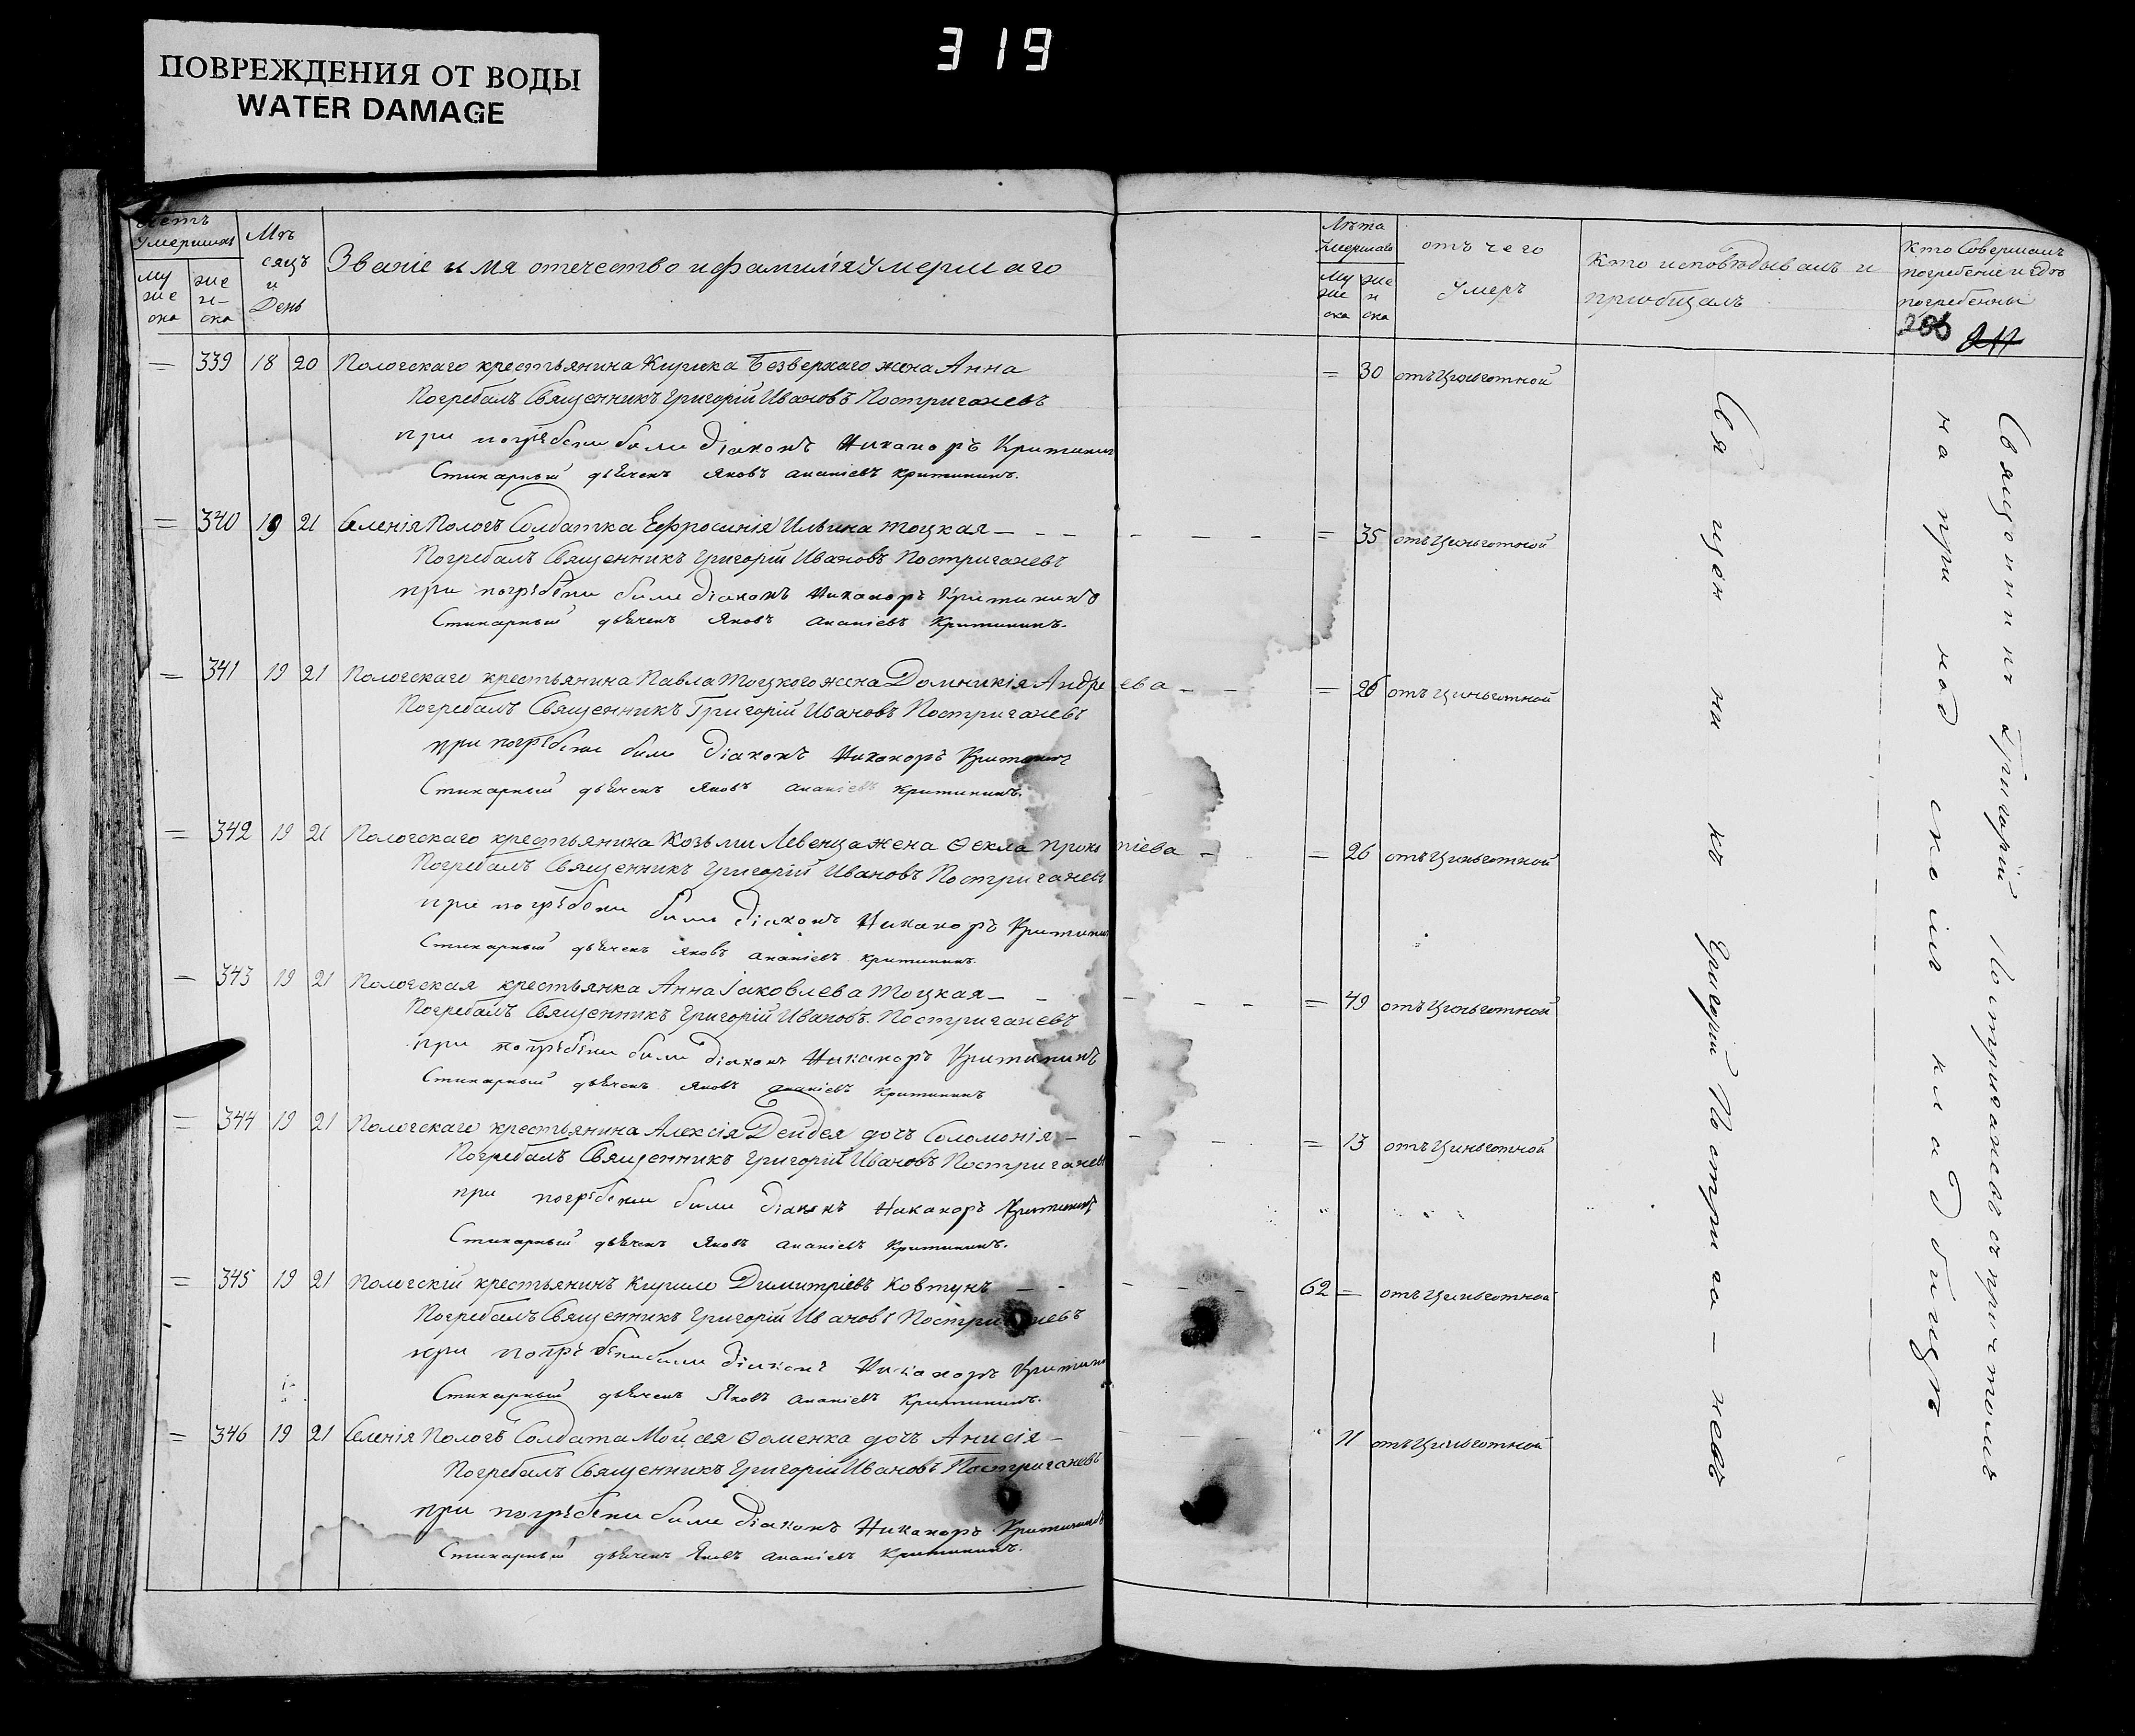 319
ПОВРЕЖДЕНИЯ ОТ ВОДЫ
WATER DAMAGE
Счетъ умершихъ
Муже ска
жен- ска
Мѣсяцъ и День
Званіе имя отечество и фамилія умершаго
Лѣта умершаго
Муже ска
жен ска
отъ чего умеръ
Кто исповѣдывалъ и пріобщалъ
Кто Совершалъ погребеніе и гдѣ погребенны
206 211
= 339 18 20 Пологскаго крестьянина Кирика Безверхаго жена Анна = 30 отъ Циньготной
Погребалъ Священникъ Григорій Ивановъ Постригачевъ
при погрѣбени били Діаконъ Никаноръ Критинин
Стихарный дьячекъ Яковъ Ананіевъ Критининъ.
= 340 19 21 Селенія Пологъ Солдатка Ефросинія Ильина Тоцкая — = 35 отъ Циньготной
Погребалъ Священникъ Григорій Ивановъ Постригачевъ
при погрѣбени били Діаконъ Никаноръ Критининъ
Стихарный дьячекъ Яковъ Ананіевъ Критининъ.
= 341 19 21 Пологскаго крестьянина Павла Тоцкого жена Домникія Андреева — = 26 отъ циньготной
Погребалъ Священникъ Григорій Ивановъ Постригачевъ
при погрѣбени били Діаконъ Никаноръ Критининъ
Стихарный дьячекъ Яковъ Ананіевъ Критининъ.
= 342 19 21 Пологскаго крестьянина Козьми Левенца жена Ѳекла Прокопіева — = 26 отъ Циньготной
Погребалъ Священникъ Григорій Ивановъ Постригачевъ
при погрѣбени били Діаконъ Никаноръ Критинин
Стихарный дьячекъ Яковъ Ананіевъ Критининъ.
= 343 19 21 Пологская крестьянка Анна Іаковлева Тоцкая — = 49 отъ Циньготной
Погребалъ Священникъ Григорій Ивановъ Постригачевъ
при погрѣбени били Діаконъ Никаноръ Критининъ
Стихарный дьячекъ Яковъ Ананіевъ Критининъ
= 344 19 21 Пологскаго крестьянина Алексія Дейдея дочъ Соломонія — = 13 отъ Циньготной
Погребалъ Священникъ Григорій Ивановъ Постригачевъ
при погрѣбени били Діаконъ Никаноръ Критининъ
Стихарный дьячекъ Яковъ Ананіевъ Критининъ.
= 345 19 21 Пологскій крестьянинъ Кирило Димитріевъ Ковтунъ — 62 = отъ Циньготной
Погребалъ Священникъ Григорій Ивановъ Постригачевъ
при погрѣбени били Діаконъ Никаноръ Критинин
Стихарный дьячекъ Яковъ Ананіевъ Критининъ.
= 346 19 21 Селенія Пологъ Солдата Мойсея Ѳоменка дочъ Анисія — 11 отъ Циньготной
Погребалъ Священникъ Григорій Ивановъ Постригачевъ
при погрѣбени били Діаконъ Никаноръ Критининъ
Стихарный дьячекъ Яковъ Ананіевъ Критининъ.
Священникъ Григорій Постригачевъ
Священникъ Григорій Постригачевъ съ причтомъ
на приходском кладбищѣ